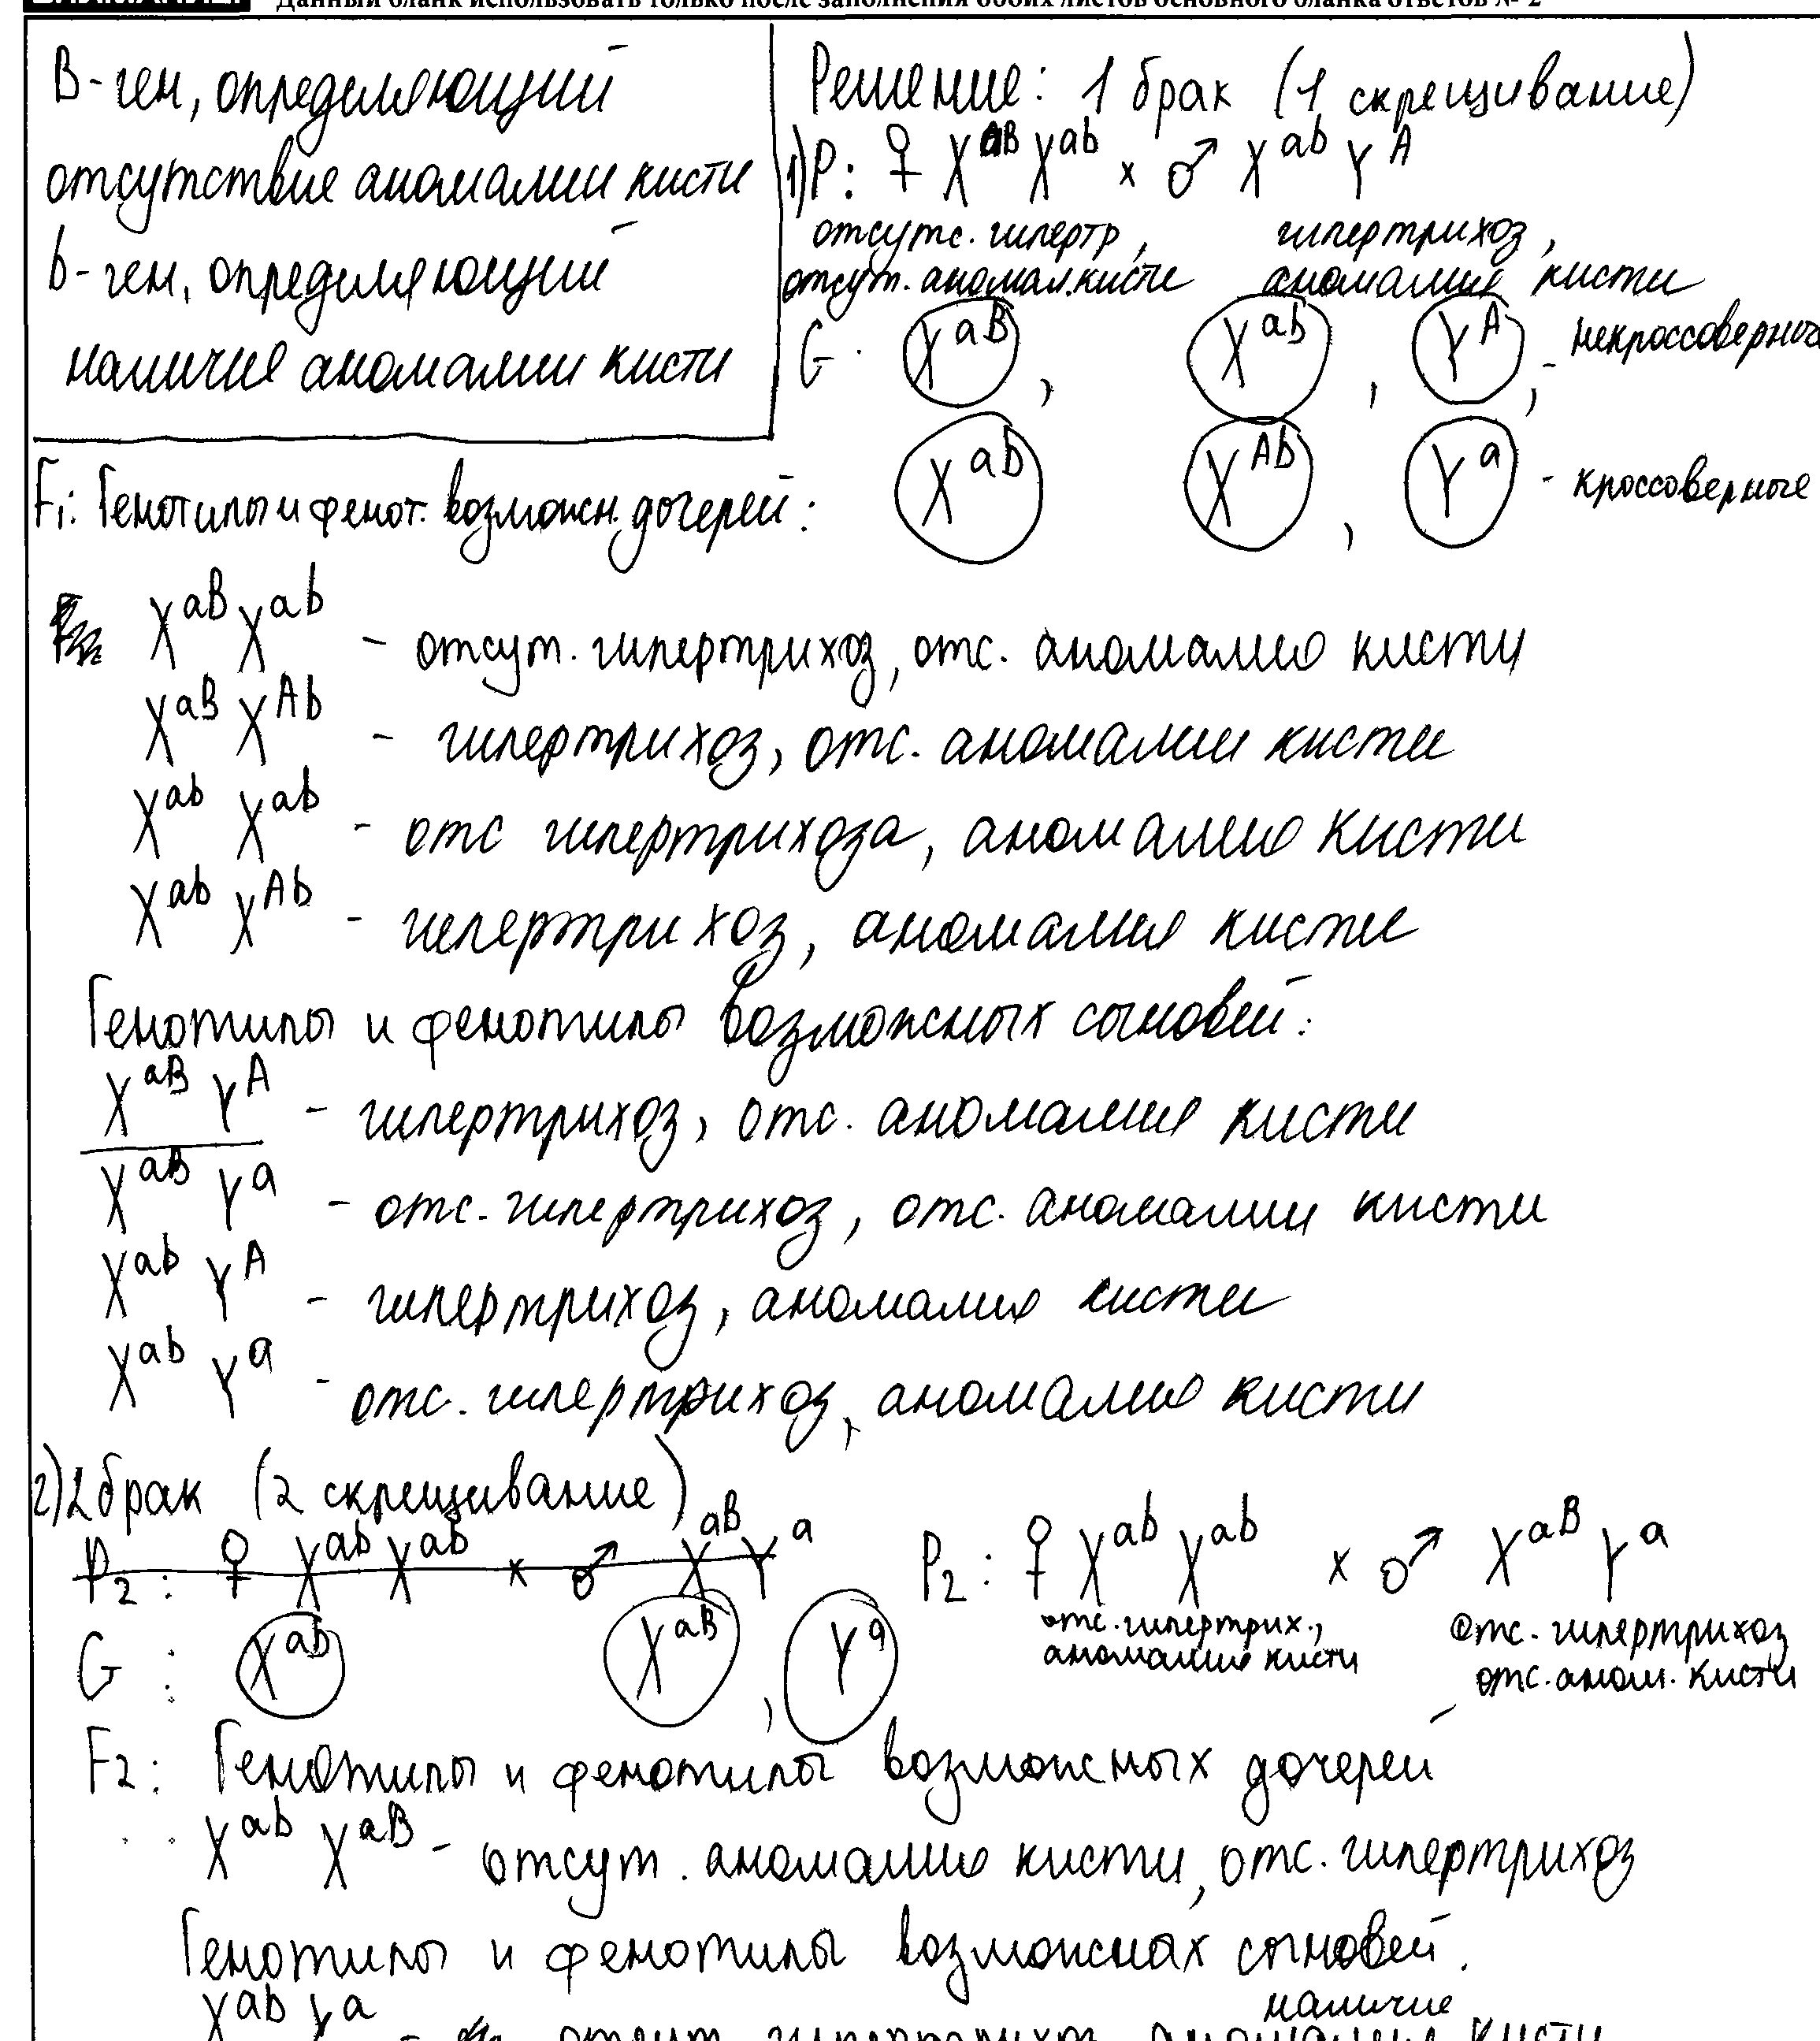 Данный бланк использовать только после заполнения обоих листов основного бланка ответов № 2
B-ген, определяющий
отсутствие аномалии кисти
b-ген, определяющий
наличие аномалии кисти
Решение: 1 брак (1 скрещивание)
1) P: ♀ X^aB X^ab × ♂ X^ab Y^A
отсутс. гипертр, гипертрихоз,
отсут. аномал. кисти аномалия кисти
G: X^aB, X^ab, Y^A, - некроссоверные
X^ab X^Ab, Y^a - кроссоверные
F₁: Генотипы и фенот. возможн. дочерей:
X^aB X^ab - отсут. гипертрихоз, отс. аномалию кисти
X^aB X^Ab - гипертрихоз, отс. аномалии кисти
X^ab X^ab - отс гипертрихоза, аномалию кисти
X^ab X^Ab - гипертрихоз, аномалия кисти
Генотипы и фенотипы возможных сыновей:
X^aB Y^A - гипертрихоз, отс. аномалия кисти
X^aB Y^a - отс. гипертрихоз, отс. аномалии кисти
X^ab Y^A - гипертрихоз, аномалия кисти
X^ab Y^a - отс. гипертрихоз, аномалию кисти
2) 2 брак (2 скрещивание)
P₂: ♀ X^ab X^ab × ♂ X^aB Y^a
P₂: ♀ X^ab X^ab × ♂ X^aB Y^a
отс. гипертрих., отс. гипертрихоз
аномалию кисти отс. аном. кисти
G: X^ab X^aB, Y^a
F₂: Генотипы и фенотипы возможных дочерей
X^ab X^aB - отсут. аномалию кисти, отс. гипертрихоз
Генотипы и фенотипы возможных сыновей.
наличие
X^ab Y^a - отсут. гипертрихоз, кисти